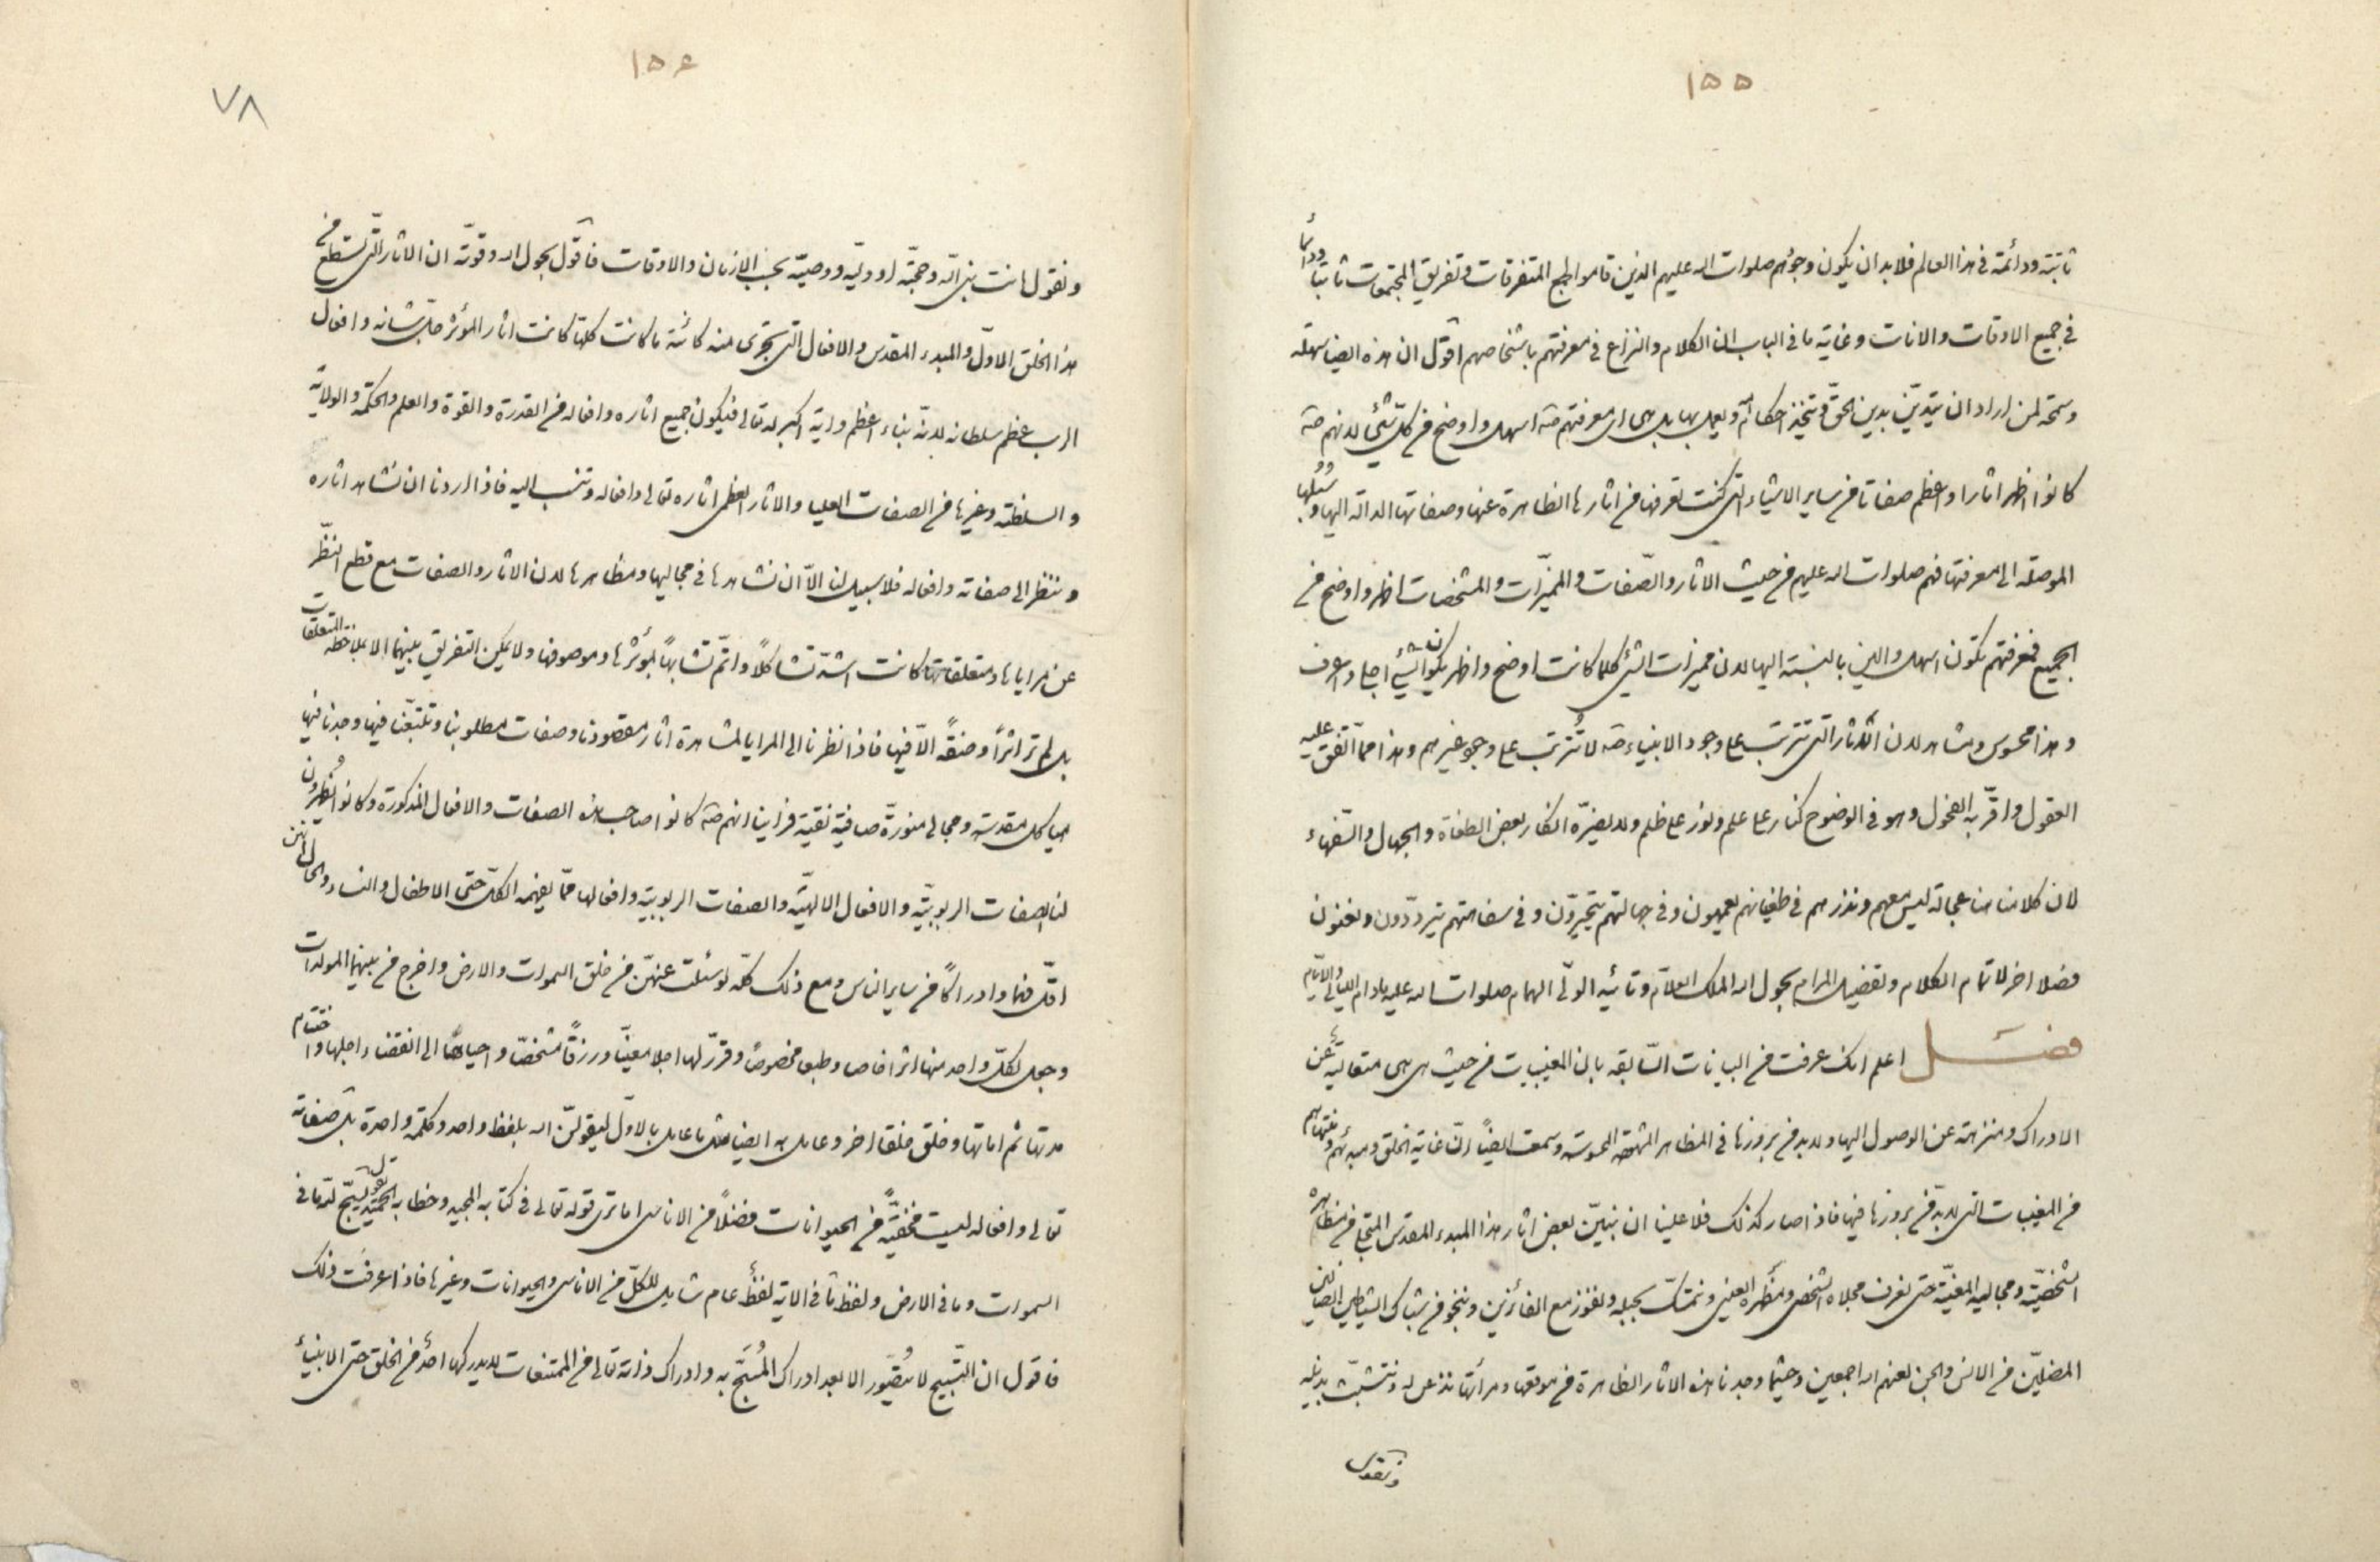 ١٥٥
ثابتة ودائمة فى هذا العالم فلابد ان يكون وجودهم صلوات الله عليهم الذين قاموا لجمع المتفرقات وتفريق المجتمعات ثابتا ودائما
فى جميع الاوقات والانات وغاية ما فى الباب ان الكلام والنزاع فى معرفتهم باشخاصهم اقول ان هذه ايضا سهلة
وسمحة لمن اراد ان يتديّن بدين الحق ويتخذ احكامه ويعمل بها بل هى اى معرفتهم اسهل واوضح من كل شئ لانهم
كانوا اظهر اثارا واعظم صفاتا من ساير الاشياء التى كنت تعرفها من اثارها الظاهرة عنها وصفاتها الدالة اليها وسُبُلها
الموصلة الى معرفتها فهم صلوات الله عليهم من حيث الاثار والصّفات والمميّزات والمشخصات اظهر واوضح من
الجميع فمعرفتهم تكون اسهل والين بالنسبة اليها لان مميزات الشئ كلما كانت اوضح واظهر يكون الشئ اجلى واعرف
وهذا محسوس ومشاهد لان الاثار التى تترتب على وجود الانبياء لا تُترتب على وجود غيرهم وهذا ممّا اتّفق عليه
العقول واقرّ به الفحول وهو فى الوضوح كنار على علم ونور على ظلم ولا يضرّه انكار بعض الطغاة والجهال والسّفهاء
لان كلامنا هنا عجالة ليس معهم ونذرهم فى طغيانهم يعمهون وفى جهالتهم يتحيرّون وفى سفاهتهم يتردّدون ونعنون
فصلا اخر لاتمام الكلام وتفصيل المرام بحول الله الملك العلّام وتائيد الولّى الهمام صلوات الله عليه مادام الليالى والايام
فصل اعلم انك عرفت من البيانات السّابقه بان المغيبات من حيث هى هى متعالية عن
الادراك ومنزهة عن الوصول اليها ولابد من بروزها فى المظاهر المشهودة المحسوسة وسمعت ايضًا انّ غاية الخلق ومبدئهم ومنتهاهم
من المغيبات التى لابدّ من بروزها فيها فاذا صار كذلك فلا علينا ان نبيّن بعض اثار هذا المبدء المقدس المتجلى من مظاهره
الشخصيّة ومجاليه المعيّنة حتى نعرف مجلاه الشخصى ومظهره العينى ونتمسّك بحبله ونفوز مع الفائزين وننجو من شباك الشياطين الضالّين
المضلّين من الانس والجن لعنهم الله اجمعين وحيثما وجدنا هذه الاثار الظاهرة من موقعها ومرآتها نذعن له ونتشبّث بذيله
ونقول
١٥٦
٧٨
ونقول انت بنى الله وحجّته او وليّه ووصيّه بحسب الازمان والاوقات فاقول بحول الله وقوّته ان الاثار التّى تسطع من
هذا الخلق الاوّل والمبدء المقدس والافعال التى تجرى منه كائنة ما كانت كلها كانت اثار المؤثر جلّ شانه وافعال
الرب عظم سلطانه لانّه نباء اعظم واية اكبر له تعالى فيكون جميع اثاره وافعاله من القدرة والقوة والعلم والحكمة والولاية
والسلطنة وغيرها من الصفات العليا والاثار العظمى اثاره تعالى وافعاله وتنسب اليه فاذا اردنا ان نشاهد اثاره
وننظر الى صفاته وافعاله فلا سبيل لنا الّا ان نشاهدها فى مجاليها ومظاهرها لان الاثار والصفات مع قطع النظّر
عن مراياها ومتعلقاتها كانت اشدّ تشاكلًا واتمّ تشابهًا بمؤثرها وموصوفها ولا يمكن التفريق بينهما الا بملاحظة المتعلقات
بل لم تر اثراً وصفةً الّا فيها فاذا نظرنا الى المرايا لمشاهدة اثار مقصودنا وصفات مطلوبنا وتتبّعنا فيها وجدنا فيها
هياكل مقدسة ومجالى منوّرة صافية نقية فراينا انهم كانوا صاحب هذه الصفات والافعال المذكورة وكانوا يُظهرون
لنا الصفات الربوبيّة والافعال الالهيّة والصفات الربوبية وافعالها ممّا يفهمه الكلّ حتى الاطفال والنساء والحال انهن
اقلّ فهما وادراكًا من ساير الناس ومع ذلك كلّه لو سئلت عنهنّ من خلق السموات والارض واخرج من بينهما المولدات
وجعل لكلّ واحد منها اثرا خاصا وطبعا مخصوصًا وقرّر لها اجلا معيّنا ورزقًا مشخصّا واحياها الى انقضاء اجلها واختتام
مدتها ثم اماتها وخلق خلقا اخر وعامل به ايضا مثل ما عامل بالاوّل ليقولنّ الله بلفظ واحد وكلمة واحدة بل صفاته
تعالى وافعاله ليست مخفيّةً من الحيوانات فضلاً من الاناس اما ترى قوله تعالى فى كتابه المجيد وخطابه الحميد يسبّح لله ما فى
السموات وما فى الارض ولفظ ما فى الاية لفظٌ عام شامل للكلّ من الاناس والحيوانات وغيرها فاذا عرفت ذلك
فاقول ان التسّبيح لا يُتصّور الا بعد ادراك المُسبَّح به وادراك ذاته تعالى من الممتنعات لا يدركها احدٌ من الخلق حتى الانبياء